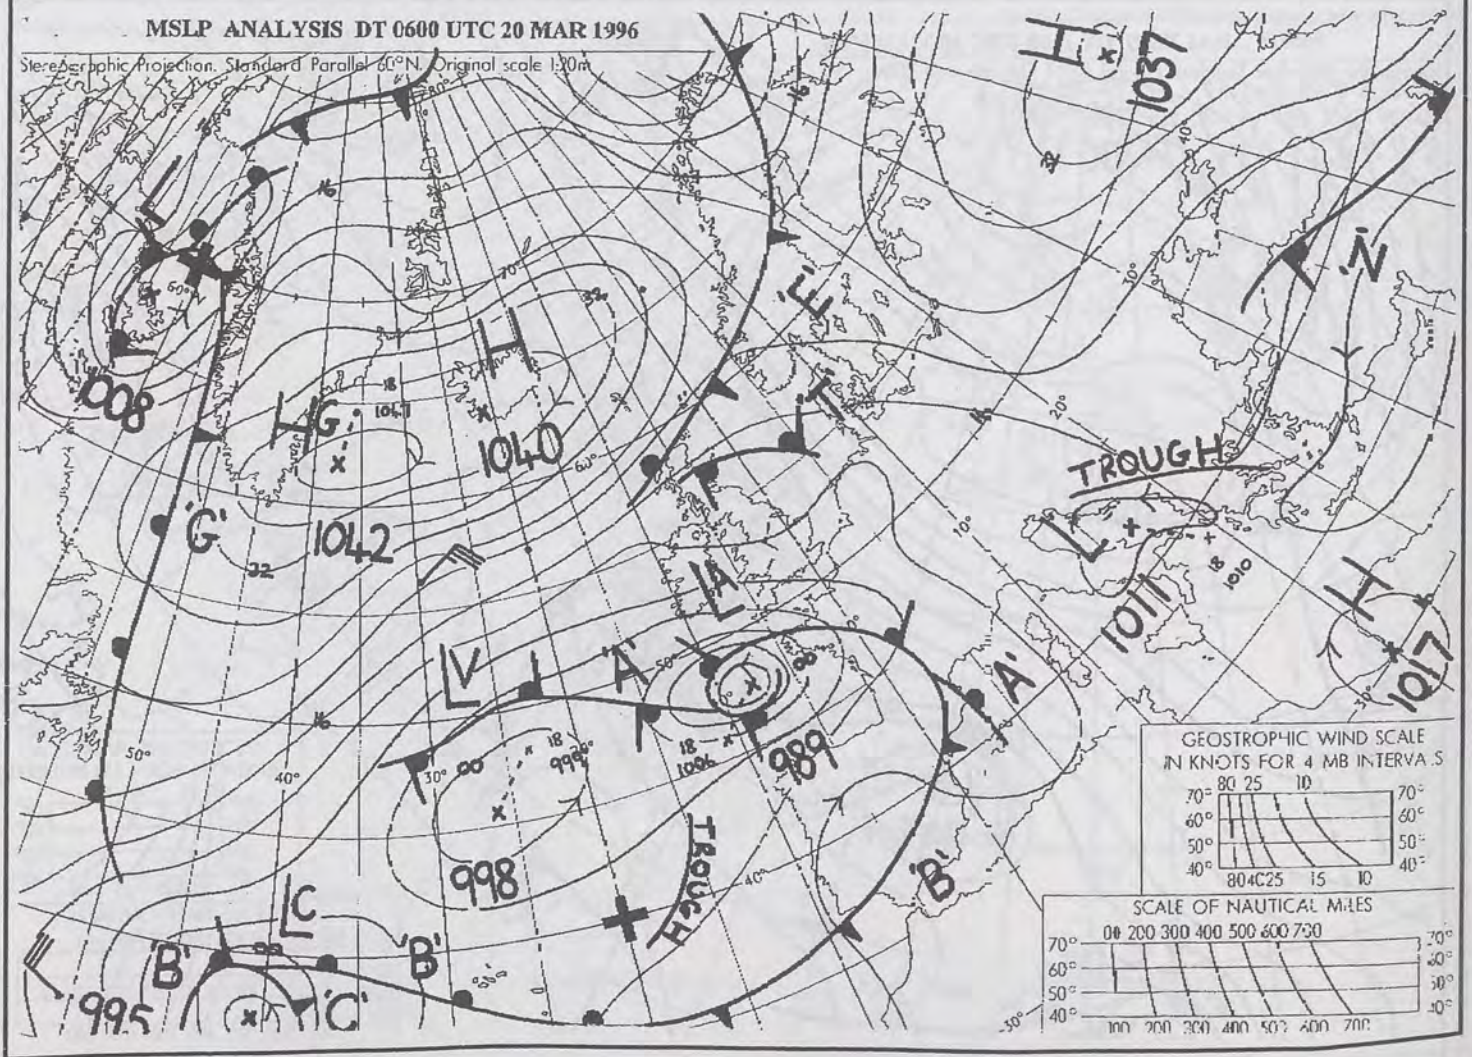 MSLP ANALYSIS DT 0600 UTC 20 MAR 1996
Stereographic Projection. Standard Parallel 60°N. Original scale 1:20m
80°
H
1037
16
16
32
40°
L
60°N
1008
70°
32
H
'E'
30°
'N'
H
G
18
1041
1040
60°
'I'
20°
16
TROUGH
'G'
1042
32
10°
L
18
1010
1011
H
1017
30°
LA
LV
'A'
50°
0°
00
'A'
16
50°
40°
30°
00
18
999
18
1006
989
998
TROUGH
40°
'B'
LC
'B'
00
'B'
995
'C'
30°
GEOSTROPHIC WIND SCALE
IN KNOTS FOR 4 MB INTERVALS
80 25 10
70° 70°
60° 60°
50° 50°
40° 40°
80 40 25 15 10
SCALE OF NAUTICAL MILES
00 200 300 400 500 600 700
70° 70°
60° 60°
50° 50°
40° 40°
100 200 300 400 500 600 700